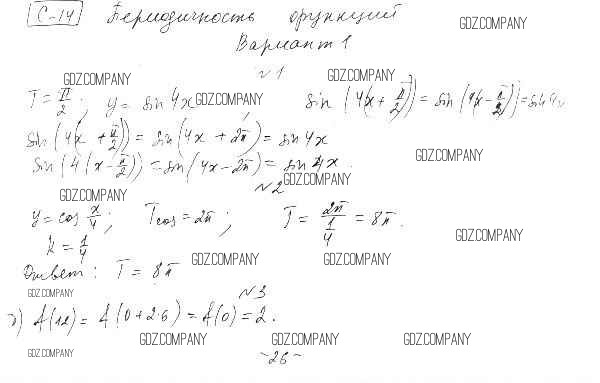 С-14 Периодичность функций GDZ.COMPANY
Вариант 1
GDZ.COMPANY №1 GDZ.COMPANY
T = π/2; y = sin 4x GDZ.COMPANY sin (4(x + π/2)) = sin (4(x - π/2)) = sin 4x
sin (4(x + π/2)) = sin (4x + 2π) = sin 4x
sin (4(x - π/2)) = sin (4x - 2π) = sin 4x. GDZ.COMPANY
GDZ.COMPANY №2 GDZ.COMPANY
y = cos x/4; T cos = 2π; T = 2π/(1/4) = 8π. GDZ.COMPANY
k = 1/4
Ответ: T = 8π GDZ.COMPANY GDZ.COMPANY
GDZ.COMPANY №3
f(12) = f(0 + 2·6) = f(0) = 2.
GDZ.COMPANY GDZ.COMPANY GDZ.COMPANY
GDZ.COMPANY ~26~